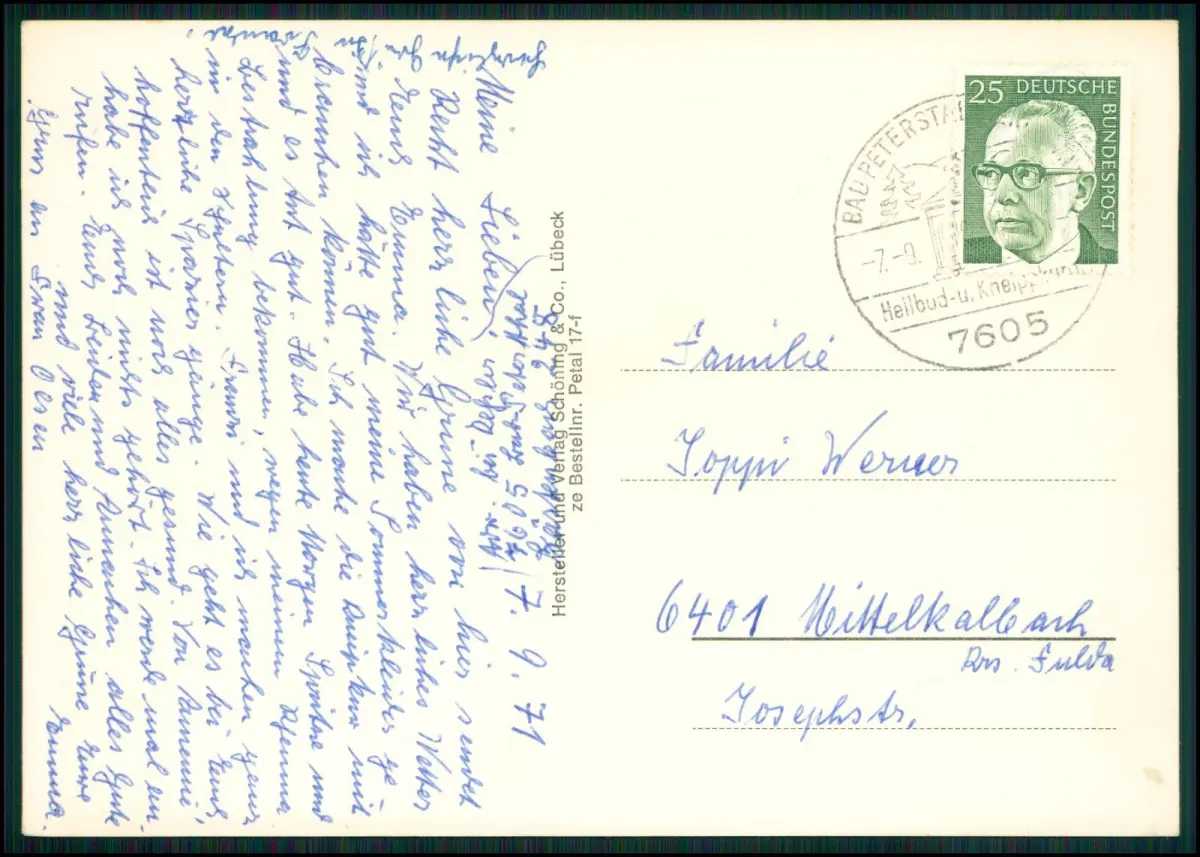 7. 9. 71
Meine Lieben!
Recht herzliche Grüße von hier sendet
Euch Emma. Wir haben herrliches Wetter
und ich hätte gut meine Sommerkleider ge-
brauchen können. Ich mache die Kneipkur mit
und es tut gut. Habe heute Morgen Spritze und
Bestrahlung bekommen, wegen meinem Rheuma
in den Schultern. und ich machen ganz
herrliche Spaziergänge. Wie geht es bei Euch,
hoffentlich ist noch alles gesund. Von Annemie
habe ich noch nichts gehört. Ich werde mal an-
rufen. Euch Lieben und Ännchen alles Gute
und viele herzliche Grüße Eure
Emma.
Gruß an Frau Oesen
Herzliche Grüße
7605 Bad Peterstal
Hersteller und Verlag Schöning & Co., Lübeck
ze Bestellnr. Petal 17-f
25 DEUTSCHE
BUNDESPOST
BAD PETERSTAL
-7.-9.
Heilbad-u. Kneippkurort
7605
Familie
Joppi Werner
6401 Mittelkalbach
Krs. Fulda
Josephstr.